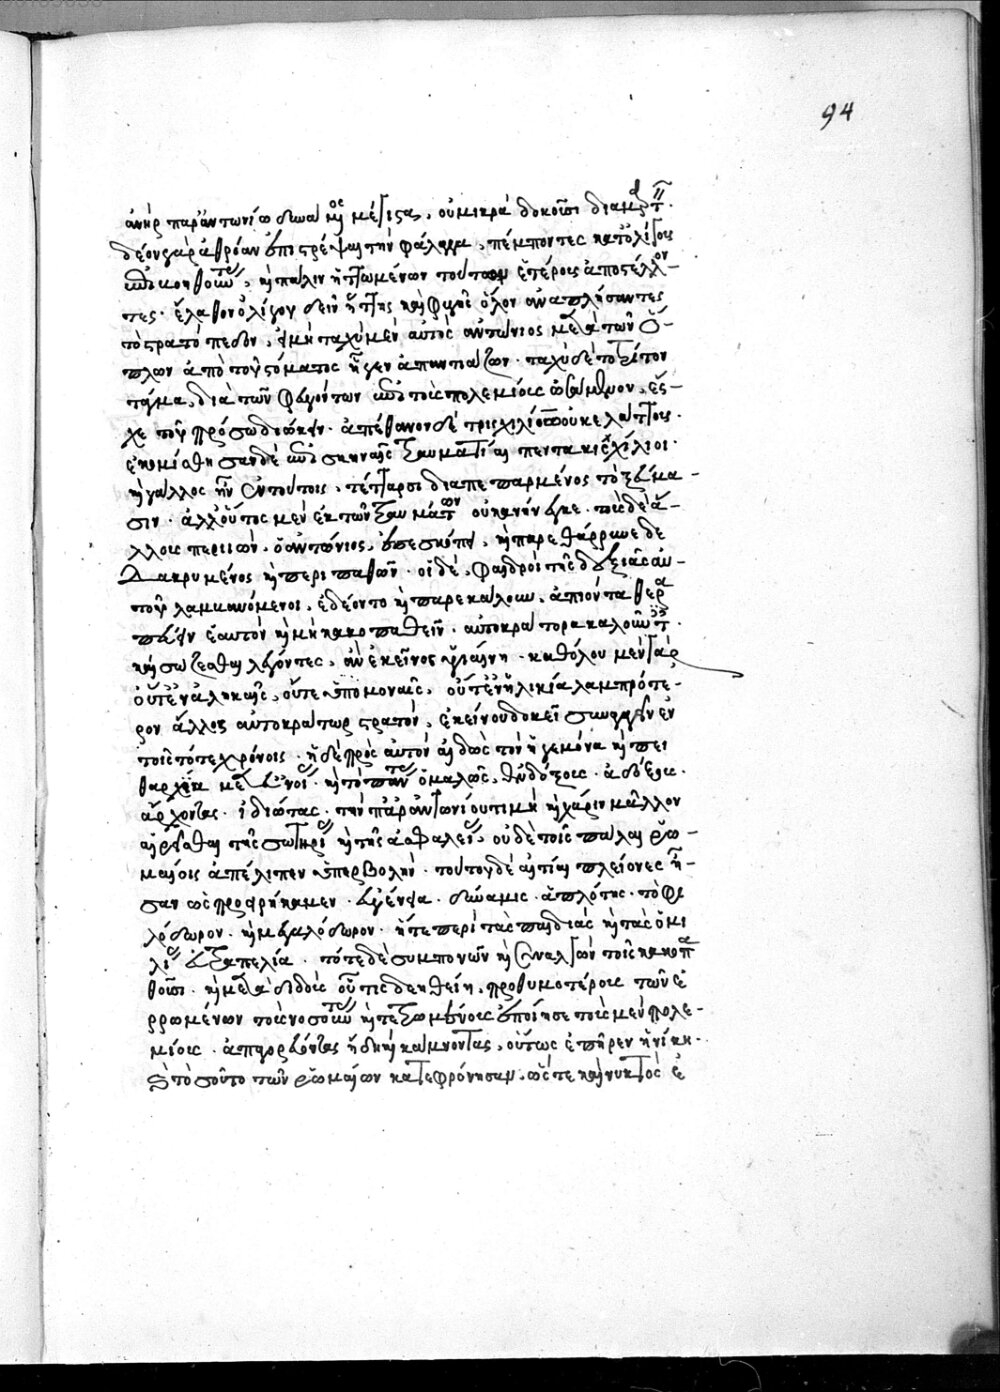 94
ἀνὴρ παρ' ἀντωνίω δυνάμενος μέγιστα, οὐ μικρὰ δοκοῦσι διαμαρτ
δέον γὰρ ἀθρόαν ἐπιστρέψαι τὴν φάλαγγα, πέμποντες κατ' ὀλίγους
ἐπιβοηθοῦντες, καὶ πάλιν ἡττωμένων τούτων ἑτέροις ἀποστέλλον-
τες. ἔλαβον ὀλίγου δεῖν ἥττης καὶ φυγῆς ὅλον ἀναπλήσαντες
τὸ στρατόπεδον, εἰ μὴ ταχὺ μὲν αὐτὸς ἀντώνιος μετὰ τῶν ὅ-
πλων ἀπὸ τοῦ στόματος ἦγεν ἀπαντιάζων. ταχὺ δὲ τὸ τρίτον
τάγμα, διὰ τῶν φευγόντων ἐπὶ τοὺς πολεμίους ὠσάμενον, ἔσ-
χε τοῦ πρόσω διώκειν. ἀπέθανον δὲ τρισχιλίων οὐκ ἐλάττους.
ἐκομίσθησαν δὲ ἐπὶ σκηνὰς τραυματίαι πεντακισχίλιοι.
καὶ γάλλος ἦν ἐν τούτοις, τέτταρσι διαπεπαρμένος τοξεύμα-
σιν. ἀλλ' οὗτος μὲν ἐκ τῶν τραυμάτων οὐκ ἀνήνεγκε. τοὺς δὲ ἄ-
λλους περιιὼν, ὁ ἀντώνιος, ἐπεσκόπει, καὶ παρεθάρρυνε δε
δακρυμένος καὶ περιπαθῶν. οἱ δὲ, φαιδροὶ τῆς δεξιᾶς αὐ-
τοῦ λαμβανόμενοι, ἐδέοντο καὶ παρεκάλουν, ἀπιόντα θερα
πεύειν ἑαυτὸν καὶ μὴ κακοπαθεῖν. αὐτοκράτορα καλοῦντ.
καὶ σώζεσθαι λέγοντες, ἂν ἐκεῖνος ὑγιαίνη. καθόλου μὲν γὰρ
οὔτ' ἐν ἀλκαῖς, οὔτε ὑπομοναῖς, οὔτ' ἐν ἡλικία λαμπρότε-
ρον ἄλλος αὐτοκράτωρ στρατὸν, ἐκείνου δοκεῖ συναγαγεῖν ἐν
τοῖς τότε χρόνοις. ἡ δὲ πρὸς αὐτὸν αἰδὼς τὸν ἡγεμόνα καὶ πει
θαρχία μετ' εὐνοίας. καὶ τὸ πάντας ὁμαλῶς, ἐνδόξους. ἀδόξους.
ἄρχοντας. ἰδιώτας. τὴν παρ' ἀντωνίου τιμὴν καὶ χάριν μᾶλλον
αἱρεῖσθαι τῆς σωτηρίας καὶ τῆς ἀσφαλείας, οὐδὲ τοῖς πάλαι ῥω-
μαίοις ἀπέλιπεν ὑπερβολήν. τούτου δὲ αἰτίαι πλείονες ἦ-
σαν ὡς προειρήκαμεν. εὐγένεια. δύναμις. ἁπλότης. τὸ φι
λόδωρον. καὶ μεγαλόδωρον. ἥ τε περὶ τὰς παιδιὰς καὶ τὰς ὁμι
λίας εὐτραπελία. τότε δὲ συμπονῶν καὶ συναλγῶν τοῖς κακοπα
θοῦσι. καὶ μεταδιδοὺς οὗ τις δεηθείη, προθυμοτέρους τῶν ἐ
ρρωμένων τοὺς νοσοῦντας καὶ τετρωμένους ἐποίησε τοὺς μὲν πολε-
μίους. ἀπαγορεύοντας ἤδη καὶ κάμνοντας, οὕτως ἐπῆρεν ἡ νίκη.
καὶ τοσοῦτο τῶν ῥωμαίων κατεφρόνησαν. ὥστε καὶ νυκτὸς ἐ